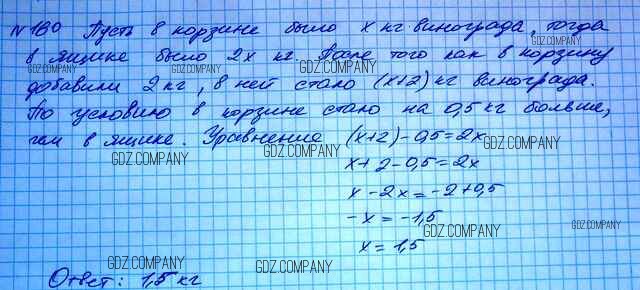 № 160 Пусть в корзине было х кг винограда, тогда
в ящике было 2х кг. После того как в корзину
добавили 2 кг, в ней стало (х+2) кг винограда.
По условию в корзине стало на 0,5 кг больше,
чем в ящике. Уравнение (х+2)-0,5=2х
х+2-0,5=2х
х-2х=-2+0,5
-х=-1,5
х=1,5
Ответ: 1,5 кг
GDZ.COMPANY
GDZ.COMPANY
GDZ.COMPANY
GDZ.COMPANY
GDZ.COMPANY
GDZ.COMPANY
GDZ.COMPANY
GDZ.COMPANY
GDZ.COMPANY
GDZ.COMPANY
GDZ.COMPANY
GDZ.COMPANY